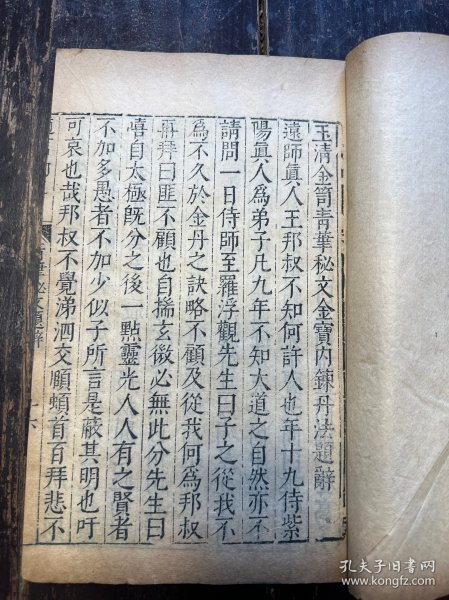 玉清金笥青華秘文金寶內鍊丹法題辭
遠師眞人王邦叔不知何許人也年十九侍紫
陽眞人為弟子凡九年不知大道之自然亦不
請問一日侍師至羅浮觀先生曰子之從我不
為不久於金丹之訣略不顧及從我何為邦叔
再拜曰匪不顧也自揣玄微必無此分先生曰
嘻自太極旣分之後一點靈光人人有之賢者
不加多愚者不加少似子所言是蔽其明也吁
可哀也哉邦叔不覺涕泗交頤頓首百拜悲不
孔夫子旧书网
www.kongfz.com